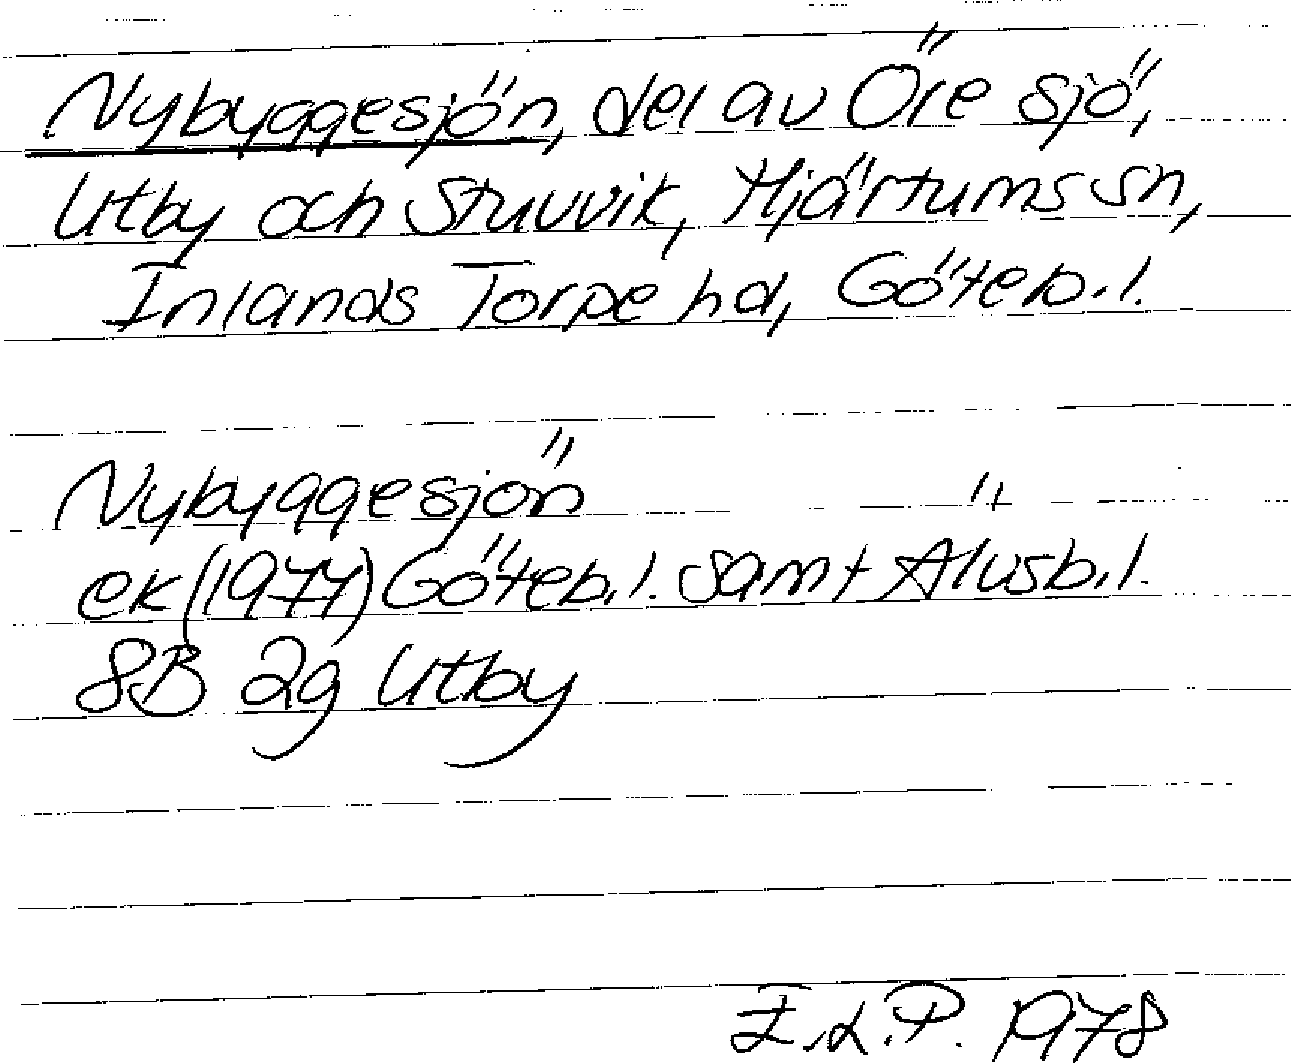 Nybyggesjön, del av Öre sjö,
Utby och Stuvvik, Hjärtums sn,
Inlands Torpe hd, Göteb.l.
Nybyggesjön "
ek (1977) Göteb.l. samt Älvsb.l.
8B 2g Utby
E.L.P. 1978